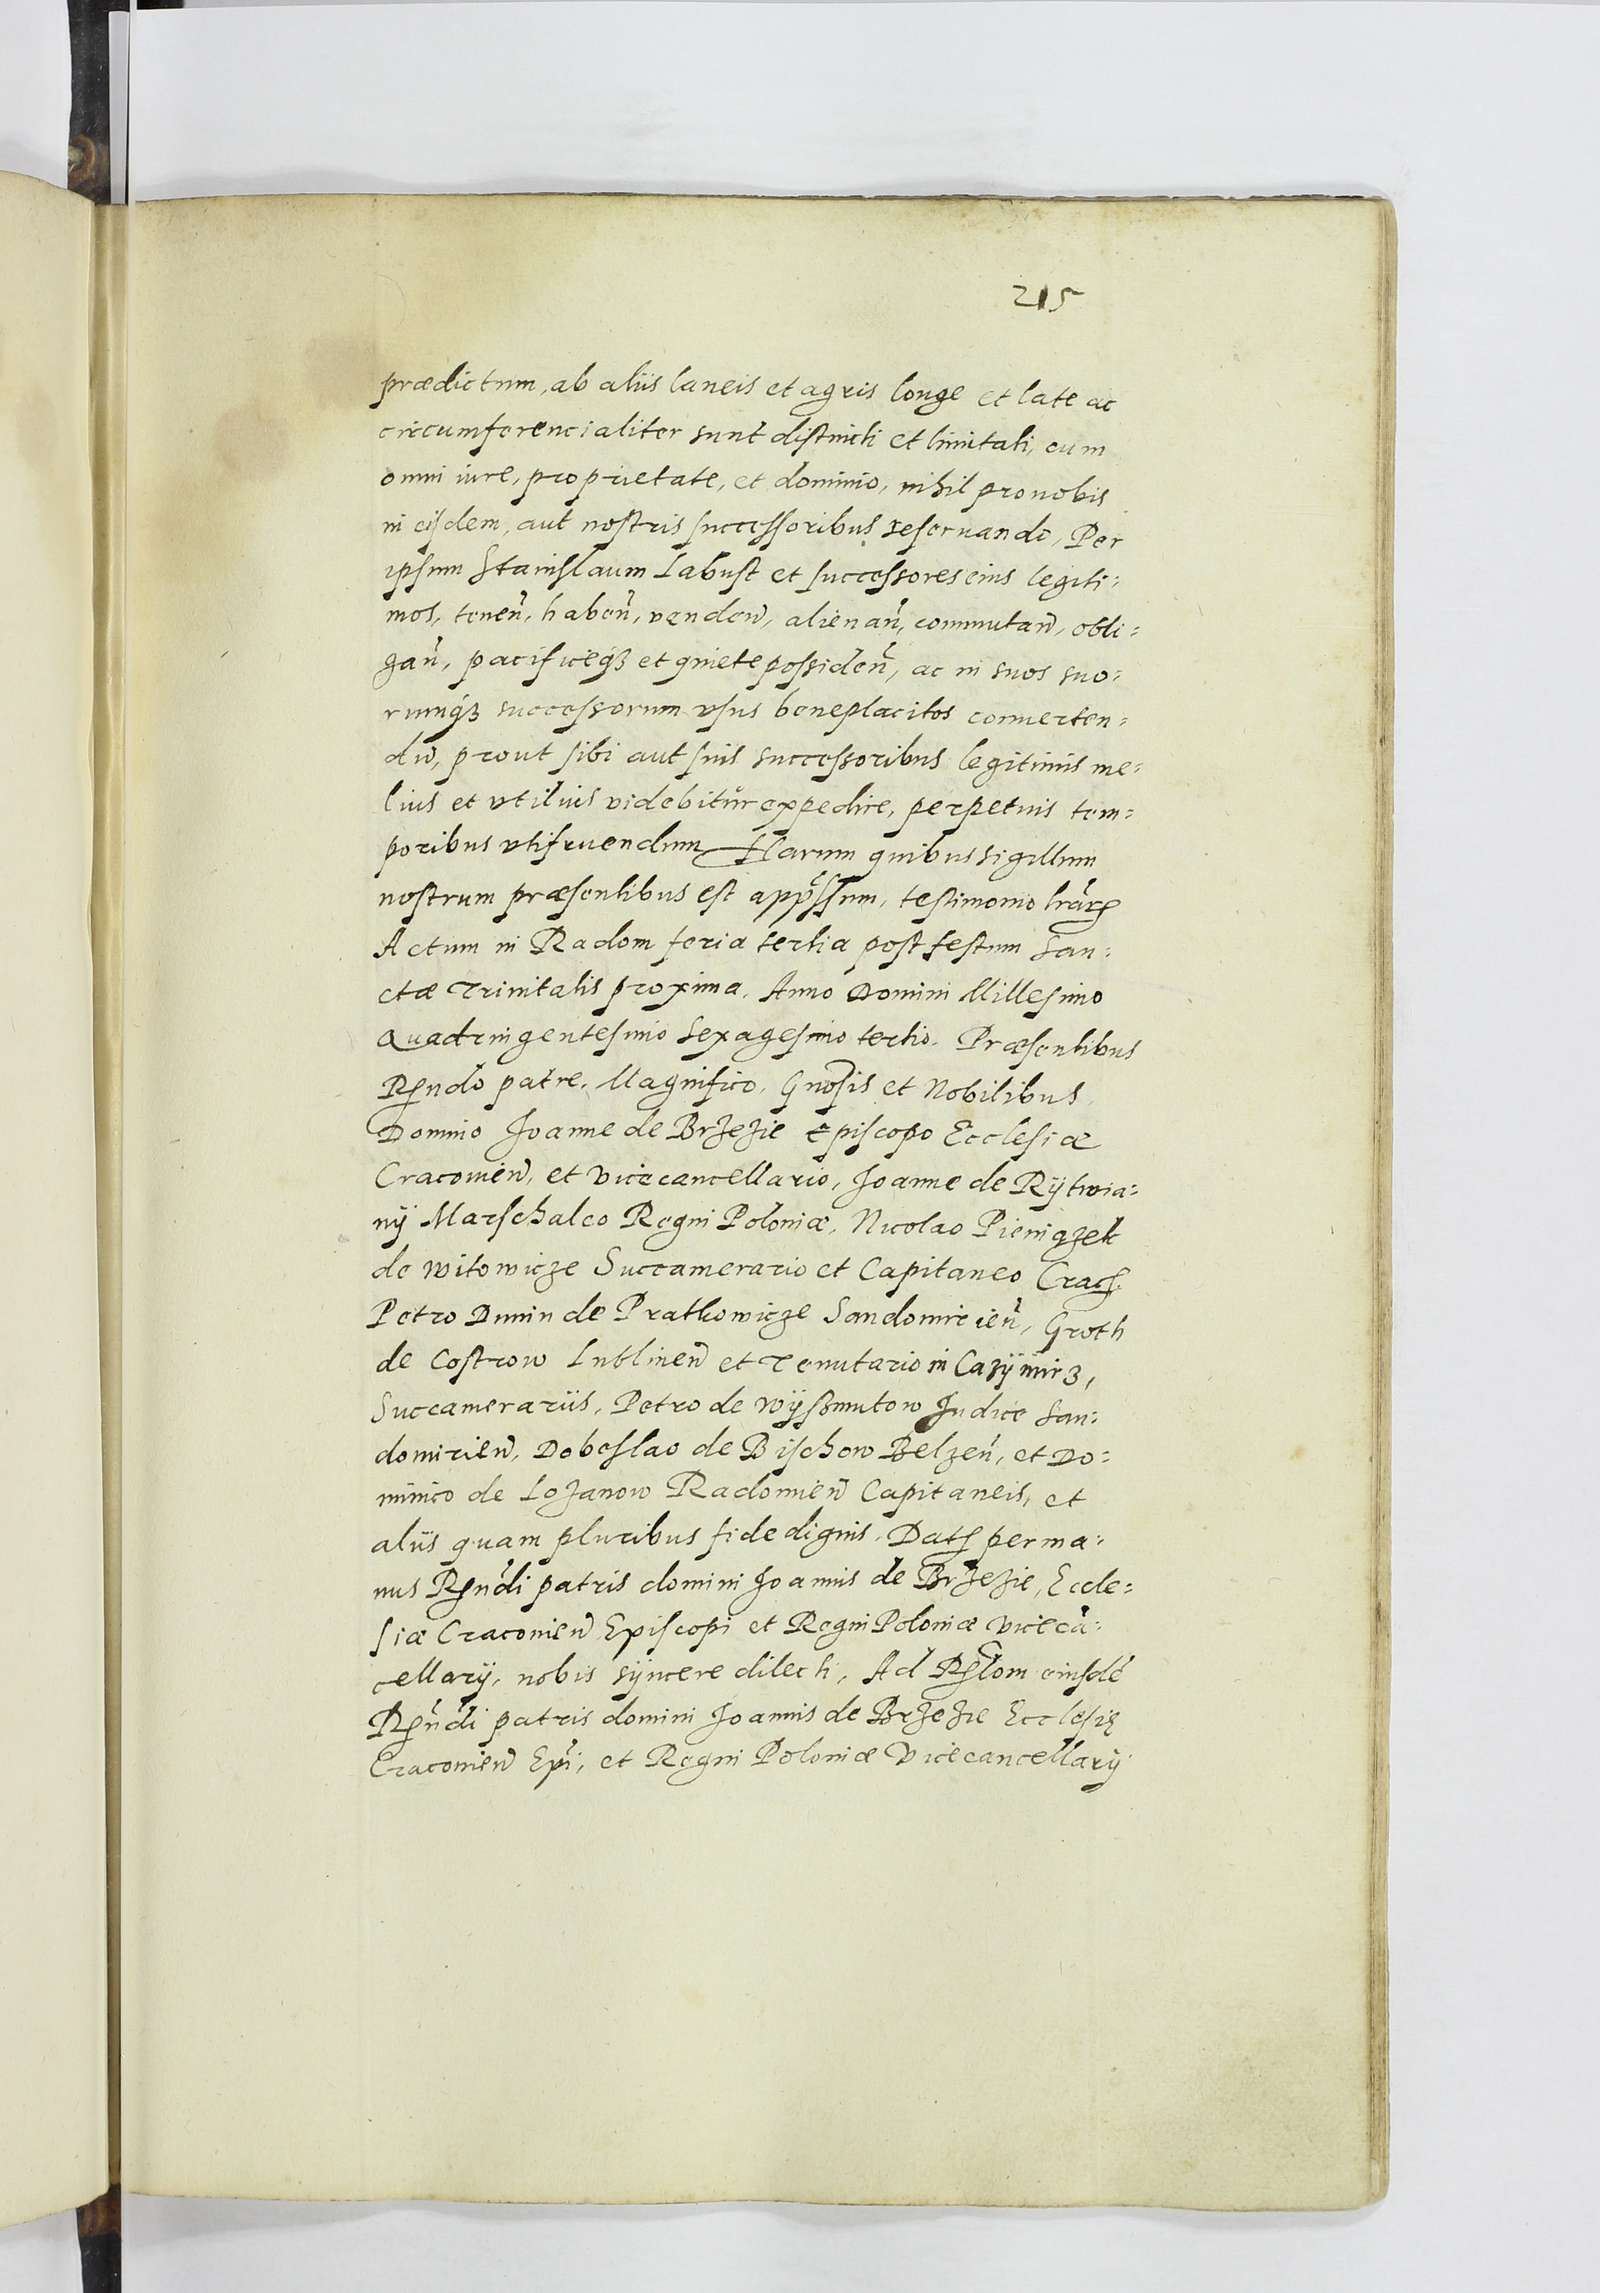 215
prædictum, ab aliis laneis et agris longe et late ac
circumferencialiter sunt distincti et limitati, cum
omni iure, proprietate, et dominio, nihil pro nobis
in eisdem, aut nostris successoribus reseruando, Per
ipsum Stanislaum Labust et successores eius legiti:
mos, tenen̄, haben̄, venden̄, alienan̄, commutan̄, obli:
gan̄, pacificeqꝫ et quiete possiden̄, ac in suos suo:
rumqꝫ successorum vsus beneplacitos conuerten:
dū, prout sibi aut suis successoribus legitimis me:
lius et vtilius videbitur expedire, perpetuis tem:
poribus vtifruendum Harum quibus sigillum
nostrum præsentibus est app̄ssum, testimonio lrāꝝ
Actum in Radom feria tertia post festum San:
ctæ Trinitatis proxima. Anno Domini Millesimo
Quadringentesimo Sexagesimo tertio. Præsentibus
Rn̄do patre, Magnifico, Gnosis et Nobilibus,
Domino Joanne de Brzezie Episcopo Ecclesiæ
Cracouien̄, et vicecancellario, Joanne de Rÿtwia:
nÿ Marschalco Regni Poloniæ, Nicolao Pieniązek
de witowicze Succamerario et Capitaneo Crac̄
Petro Dunin de Prathowicze Sandomirien̄, Groth
de Costrow Lublinen̄ et Tenutario in Cazÿmirz,
Succamerariis, Petro de wÿszmutow Judice San:
domirien̄, Doboslao de Bischow Belzen̄, et Do:
minico de Lozanow Radomien̄ Capitaneis, et
aliis quam pluribus fide dignis. Datꝫ per ma:
nus Rn̄di patris domini Joannis de Brzezie, Eccle:
siæ Cracouien̄ Episcopi et Regni Poloniæ vicecā:
cellarÿ, nobis sÿncere dilecti, Ad Rel̄om eiusdē
Rn̄di patris domini Joannis de Brzezie Ecclesię
Cracouien̄ Epī, et Regni Poloniæ Vicecancellarÿ